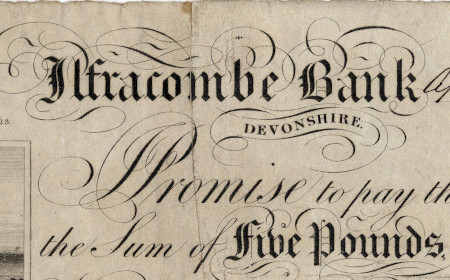 Ilfracombe Bank
DEVONSHIRE.
23
Promise to pay th
the Sum of Five Pounds,